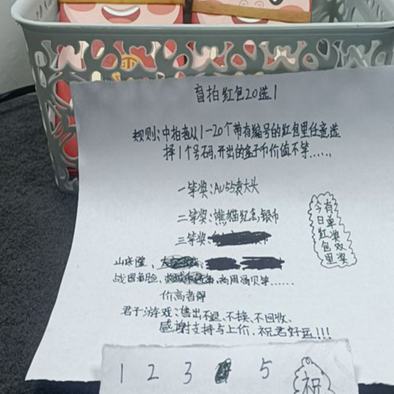 盲拍红包20送1
规则:中拍者从1-20个带有编号的红包里任意选
择1个号码,开出的盒子币价值不等......
一等奖:AU55袁大头
二等奖:熊猫纪念银币
三等奖:
战国 商用 贝等......
价高者得
君子游戏:售出不退、不换、不回收、
感谢支持与上价.祝君好运!!!
有单双奖
子日红包里
1 2 3 5 祝